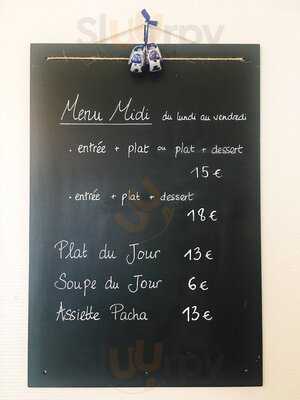 Slurpy
Menu Midi du lundi au vendredi
. entrée + plat ou plat + dessert
15 €
. entrée + plat + dessert
18 €
Plat du Jour 13 €
Soupe du Jour 6 €
Assiette Pacha 13 €
Slurpy